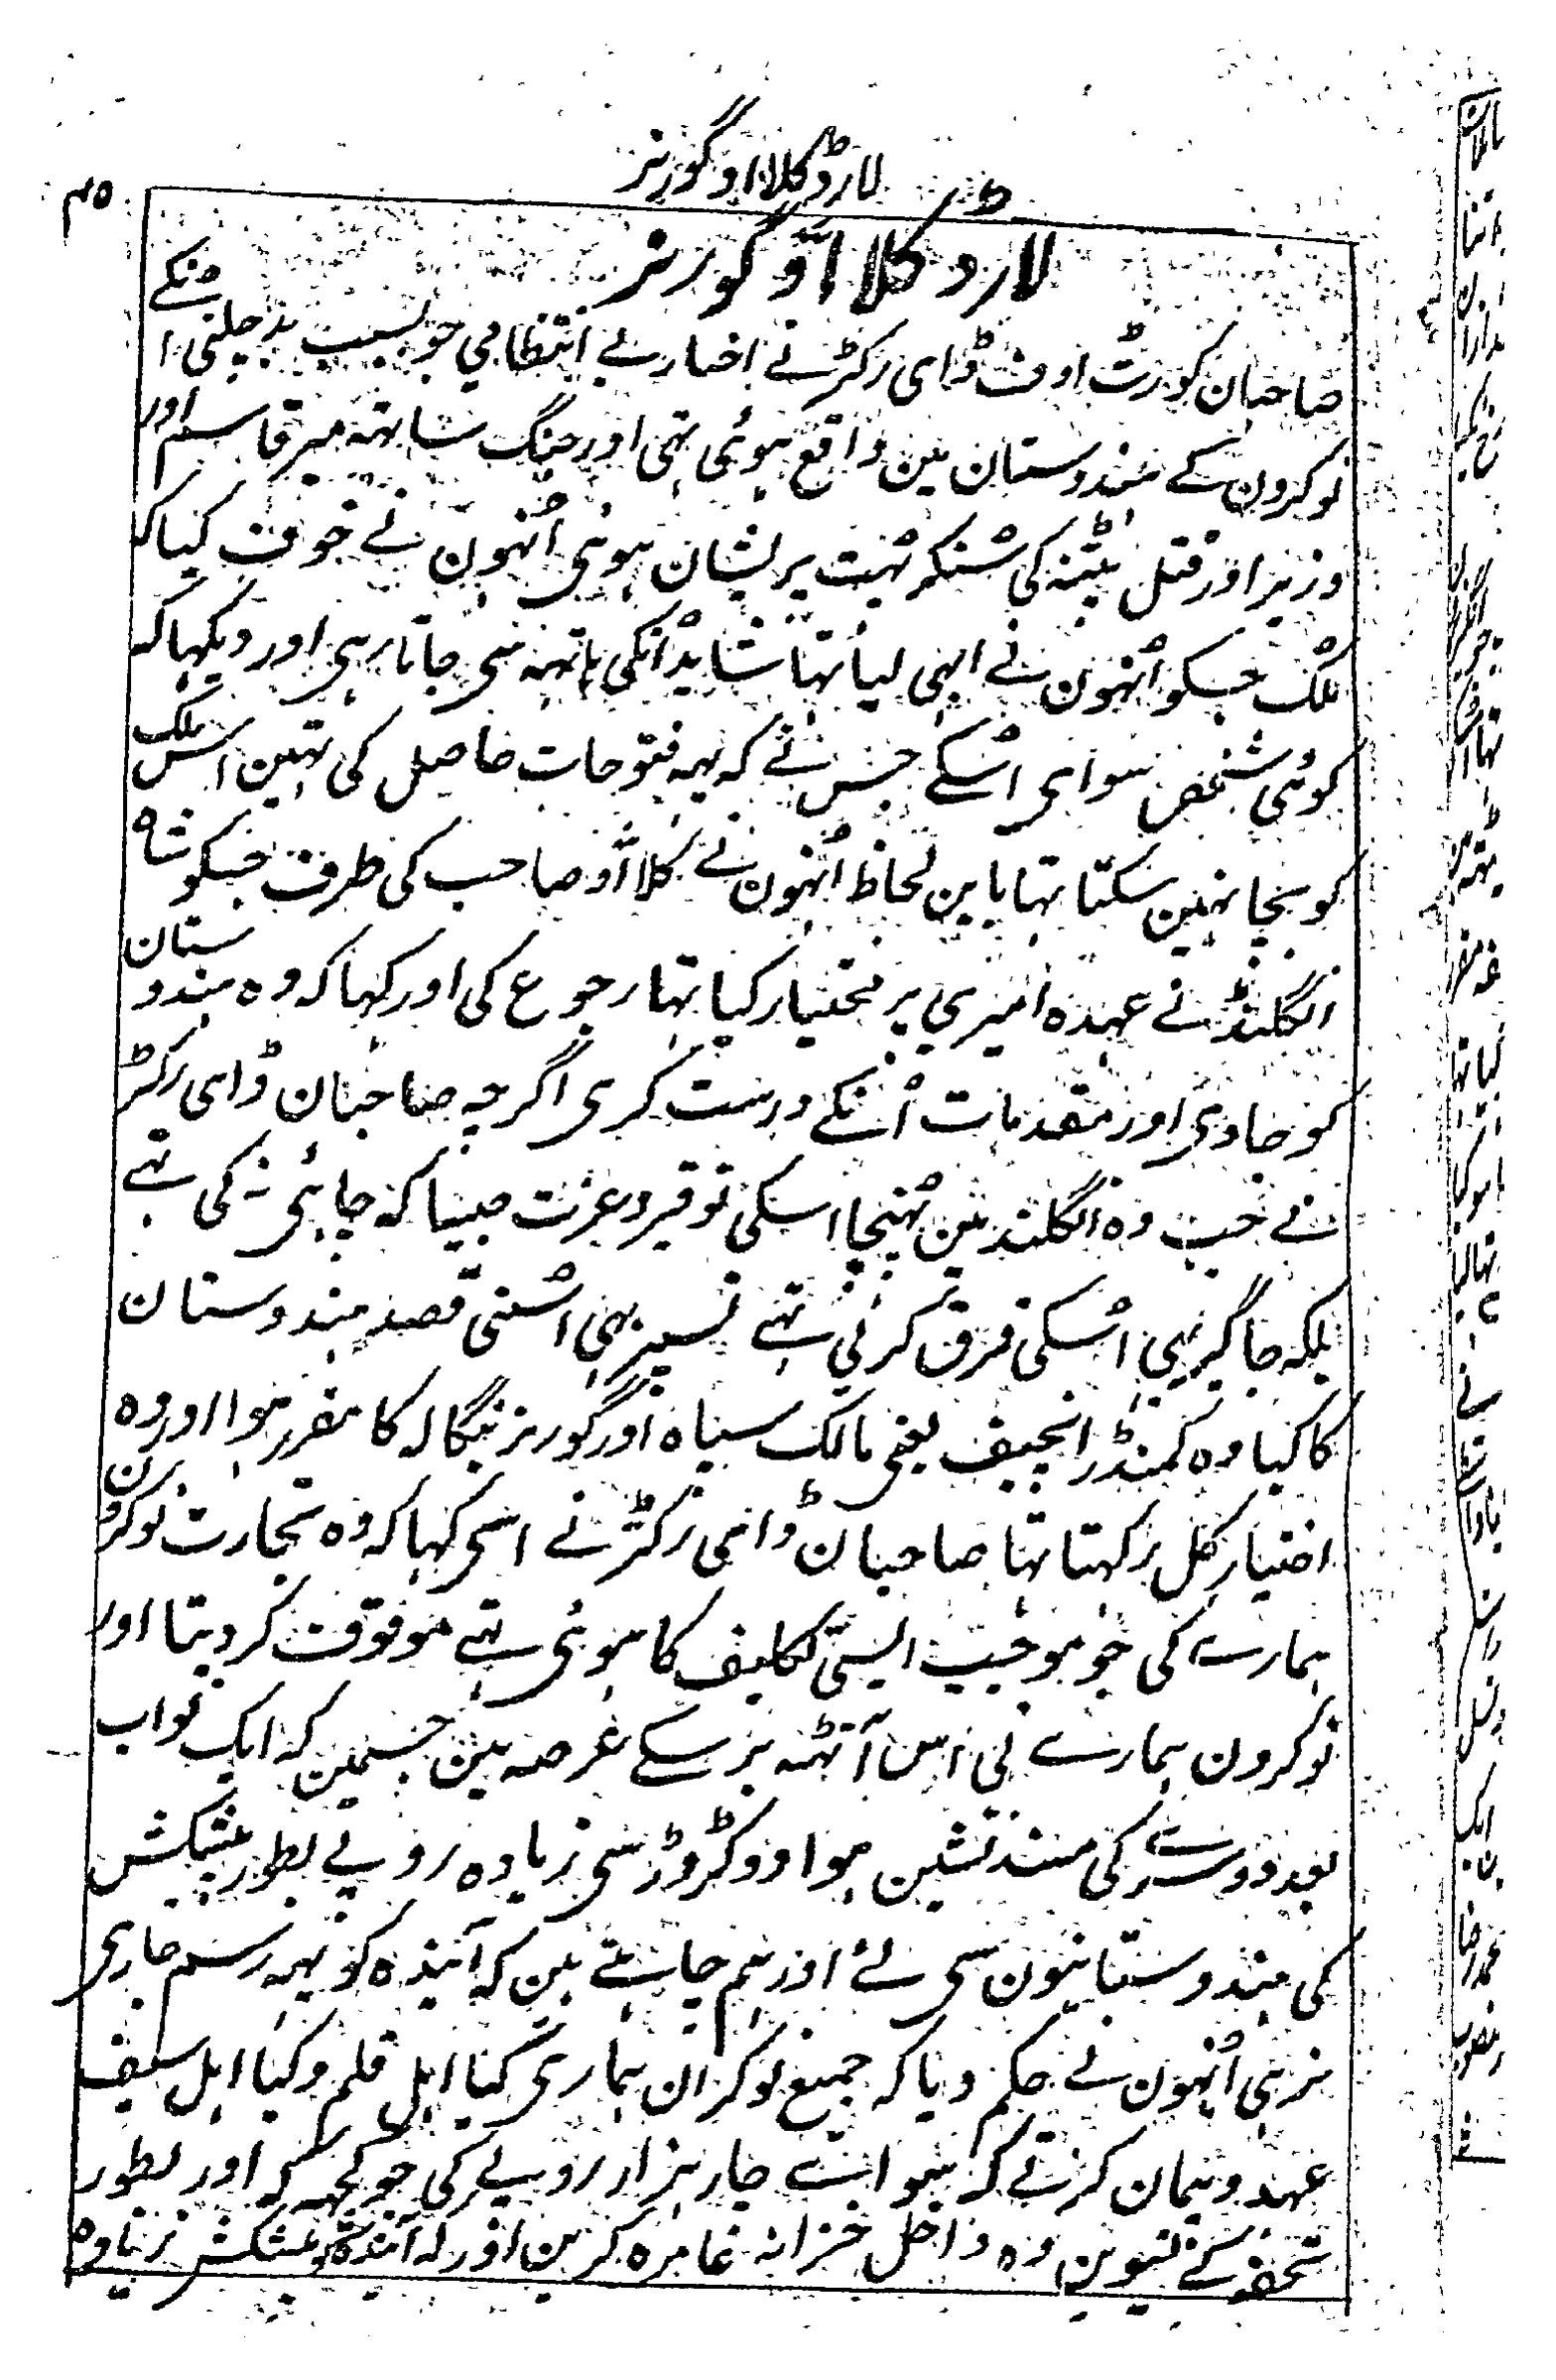 لارڈ کلااو گورنر
۴۵
لارڈ کلااؤ گورنر
صاحبان کورٹ اوف ڈای رکٹر نے اخبار بے انتظامی جو بسبب بد چلنی اُنکے
نوکرون کے ہندوستان مین واقع ہوئی تہی اور جنگ ساتہہ میر قاسم اور
وزیر اور قتل پٹنہ کی سُنکر بہت پریشان ہوئی اُنہون نے خوف کیا کہ
ملک جسکو اُنہون نے ابہی لیا تہا شاید اُنکی ہاتہہ سی جاتا رہی اور دیکہا کہ
کوئی شخص سوای اُسکے جس نے کہ یہہ فتوحات حاصل کی تہین اُس ملک
کو بچا نہین سکتا تہا باین لحاظ اُنہون نے کلااؤ صاحب کی طرف جسکو شاہ
انگلنڈ نے عہدہ امیری پر مختیار کیا تہا رجوع کی اور کہا کہ وہ ہندوستان
کو جاوی اور مقدمات اُنکے درست کری اگرچہ صاحبان ڈای رکٹر
نے جب وہ انگلنڈ مین پہنچا اسکی توقیر و عزت جیسا کہ چاہئی نہ کی تہے
بلکہ جاگیر بہی اُسکی قرق کرلی تہے تسپر بہی اُسنی قصد ہندوستان
کا کیا وہ کمنڈر انچیف یعنی مالک سپاہ اور گورنر بنگالہ کا مقرر ہوا اور وہ
اختیار کل رکہتا تہا صاحبان ڈای رکٹر نے اسی کہا کہ وہ تجارت نوکرون
ہمارے کی جو موجب ایسی تکلیف کا ہوئی تہے موقوف کر دیتا اور
نوکرون ہمارے نی اس آٹہہ برسکے عرصہ مین جسمین کہ ایک نواب
بعد دوسرے کی مسند نشین ہوا دو کڑوڑ سی زیادہ روپے بطور پیشکش
کی ہندوستانیون سی لئے اور ہم چاہتے ہین کہ آیندہ کو یہہ رسم جاری
نرہی اُنہون نے حکم دیا کہ جمیع نوکران ہماری کیا اہل قلم و کیا اہل سیف
عہد و پیمان کرتے کہ سوائے چار ہزار روپے کی جو کچہہ کہ اور بطور
تحفہ کے لیوین وہ داخل خزانہ عامرہ کرین اور آیندہ کو پیشکش زیادہ